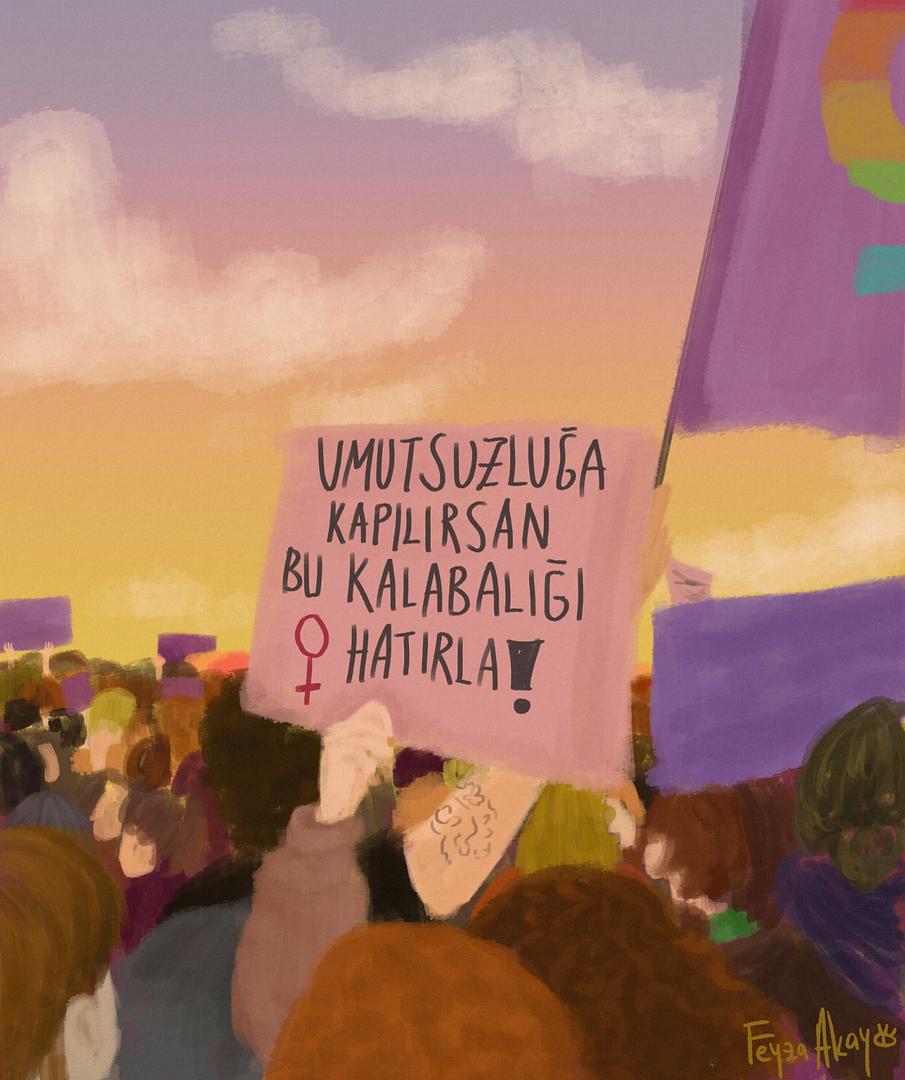 UMUTSUZLUĞA
KAPILIRSAN
BU KALABALIĞI
HATIRLA!
Feyza Akay